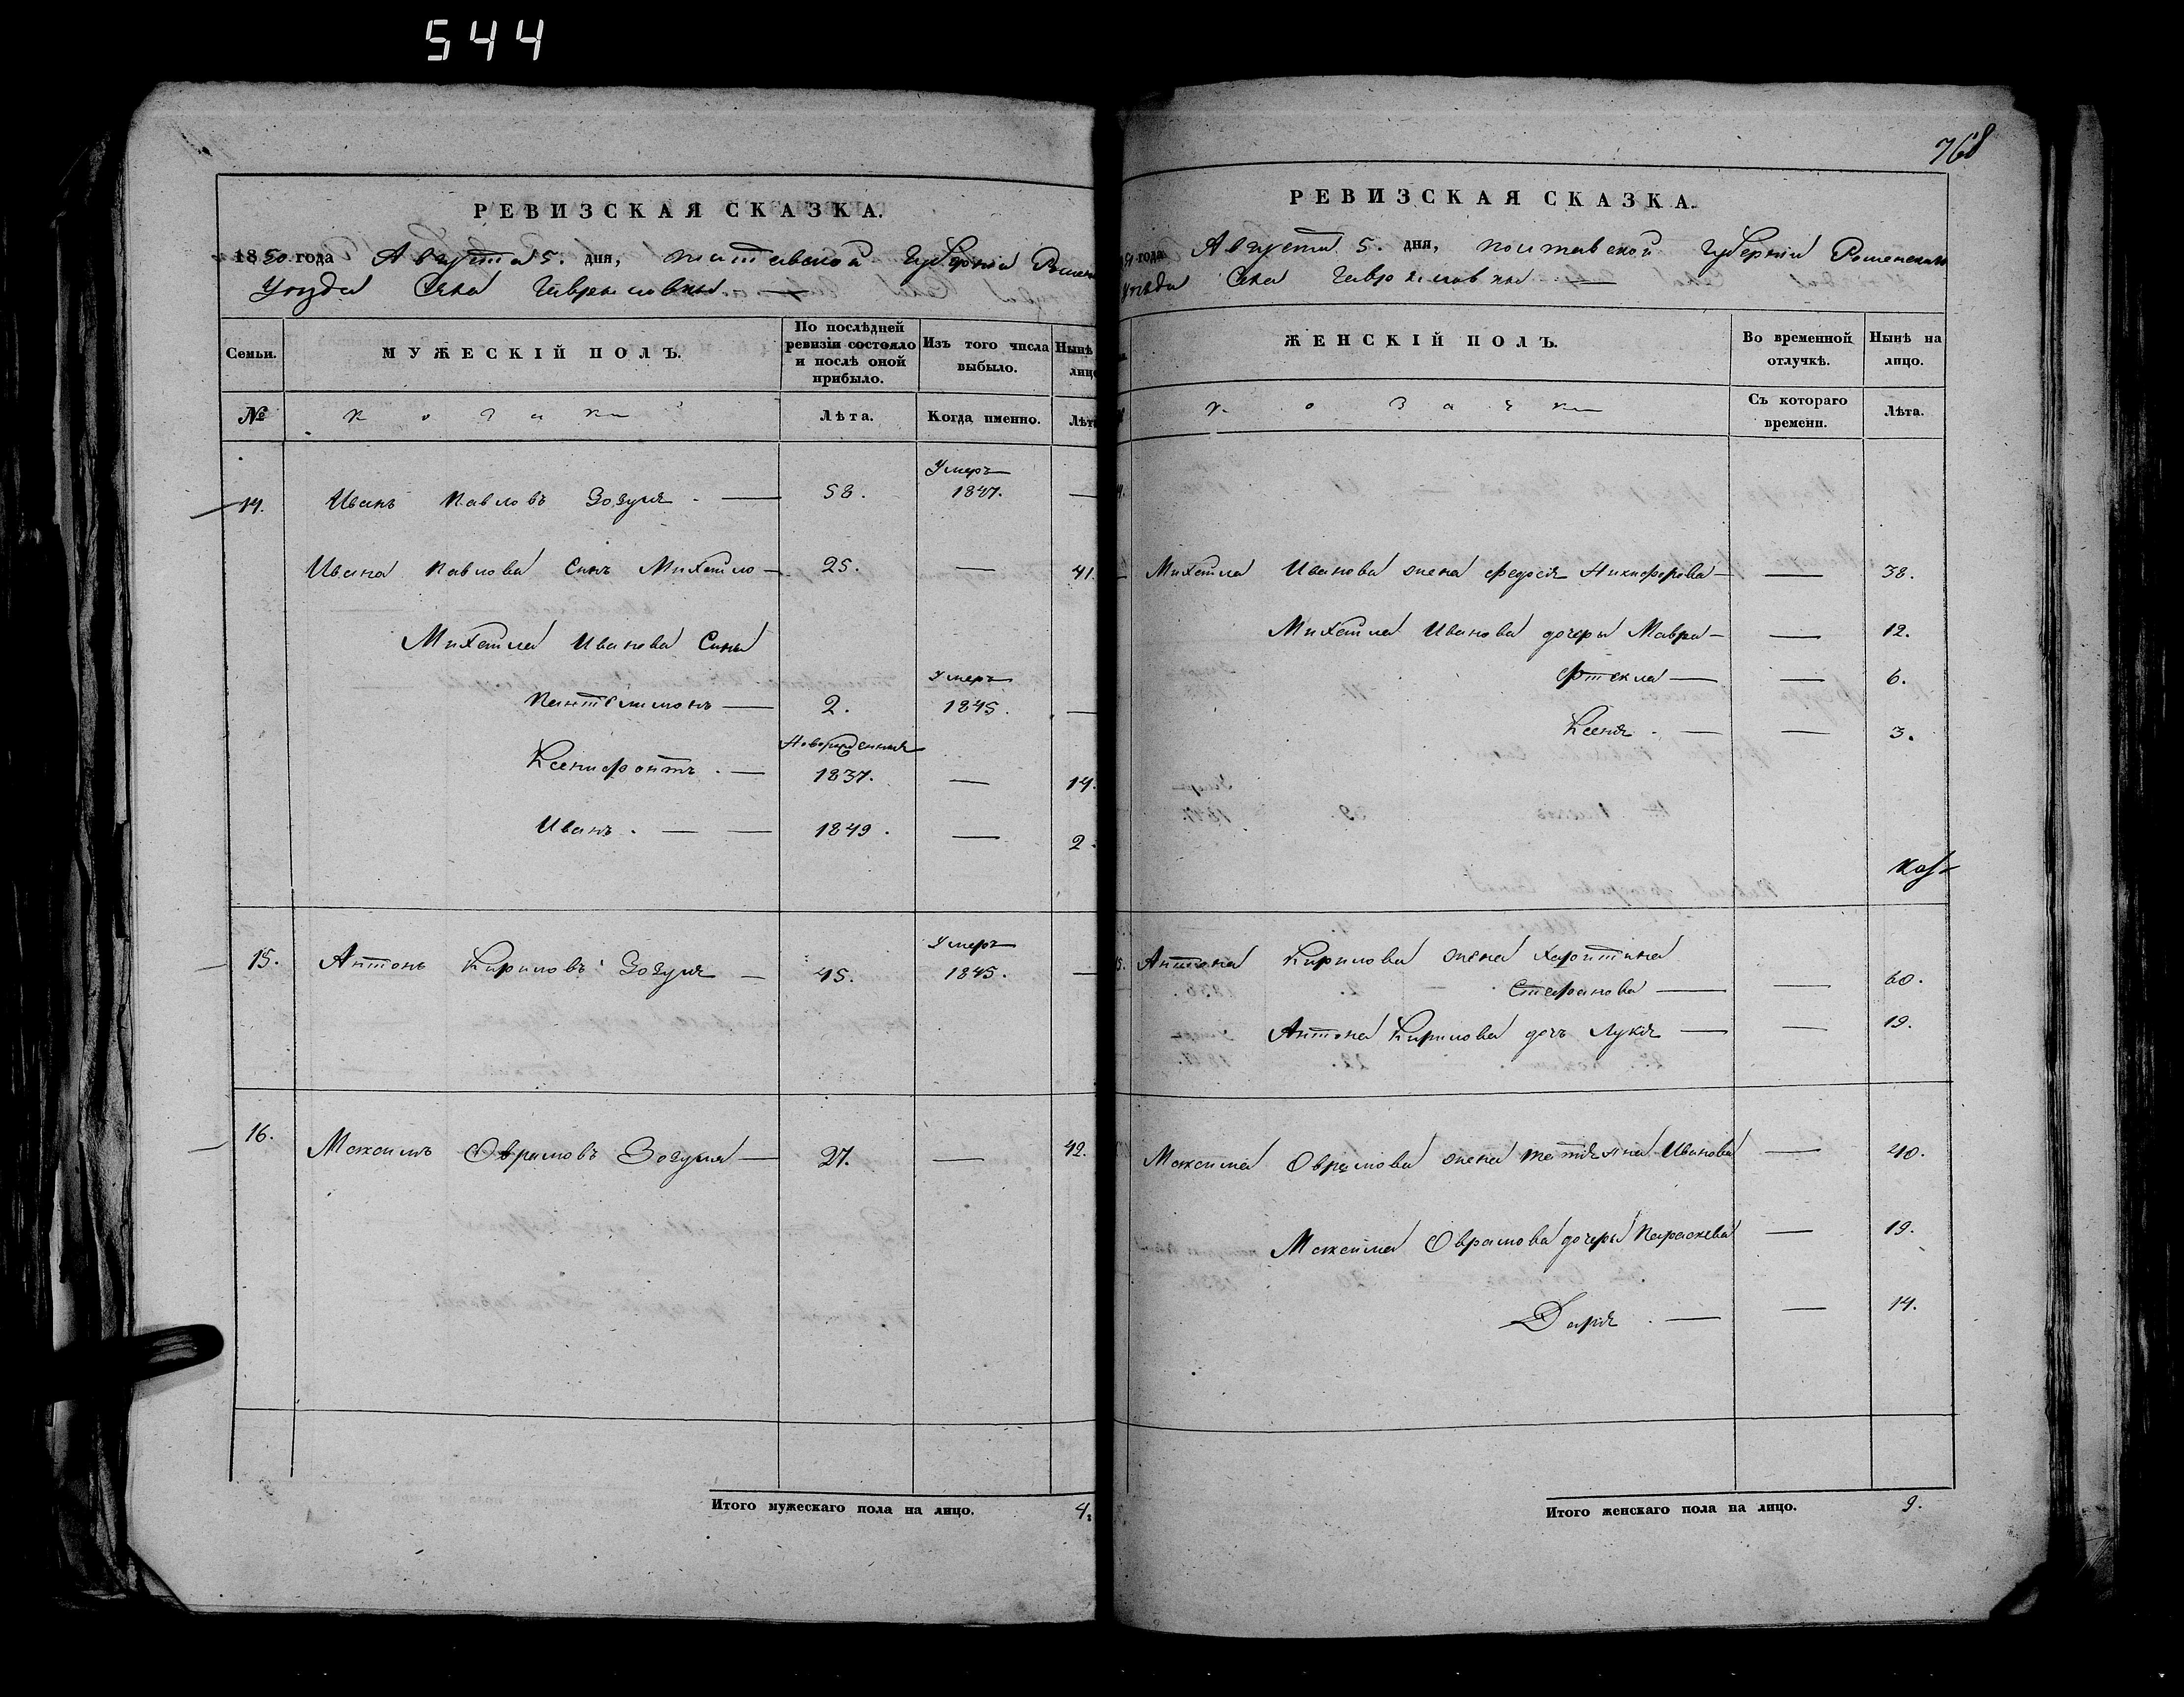 544
РЕВИЗСКАЯ СКАЗКА.
1850 года Августа 5. дня, Полтавской Губерніи
Уезда Села Гаврыловки
Семьи.
МУЖЕСКІЙ ПОЛЪ.
По послѣдней ревизіи состояло и послѣ оной прибыло.
Изъ того числа выбыло.
Нынѣ
№
козаки
Лѣта.
Когда именно.
14. Иванъ Павловъ Зозуля 58. Умеръ 1847.
Ивана Павлова Сынъ Михайло 25. 41.
Михайла Иванова Сыны
Пантелимонъ 2. Умеръ 1845.
Новорожденныя
Ксенифонтъ 1837. 14.
Иванъ 1849. 2.
15. Антонъ Кириловъ Зозуля 45. Умеръ 1845.
16. Максимъ Оврамовъ Зозуля 27. 42.
Итого мужескаго пола на лицо. 4.
768
РЕВИЗСКАЯ СКАЗКА.
года Августа 5. дня, Полтавской Губерніи Роменскаго
Уезда Села Гаврыловки
ЖЕНСКІЙ ПОЛЪ.
Во временной отлучкѣ.
Нынѣ на лицо.
козачки
Съ котораго времени.
Лѣта.
Михайла Иванова жена Федосія Никифорова 38.
Михайла Иванова дочери Мавра 12.
Фтекла 6.
Ксенія 3.
15. Антона Кирилова жена Харитина
Стефанова 60.
Антона Кирилова дочь Лукія 19.
Максима Оврамова жена Татіяна Иванова 40.
Максима Оврамова дочери Параскева 19.
Дарія 14.
Итого женскаго пола на лицо. 9.